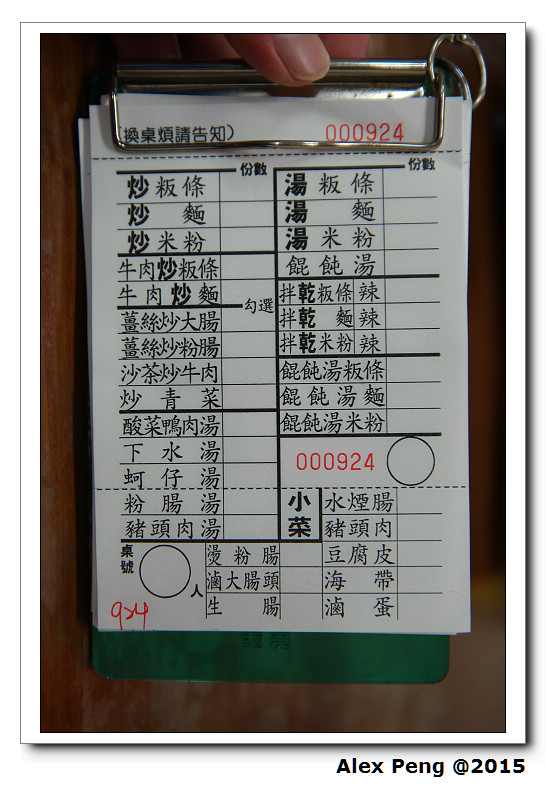 (換桌煩請告知) 000924
份數
炒粄條
炒麵
炒米粉
牛肉炒粄條
牛肉炒麵
勾選
薑絲炒大腸
薑絲炒粉腸
沙茶炒牛肉
炒青菜
酸菜鴨肉湯
下水湯
蚵仔湯
粉腸湯
豬頭肉湯
份數
湯粄條
湯麵
湯米粉
餛飩湯
拌乾粄條 辣
拌乾麵 辣
拌乾米粉 辣
餛飩湯粄條
餛飩湯麵
餛飩湯米粉
000924
小菜
水煙腸
豬頭肉
豆腐皮
海帶
滷蛋
燙粉腸
滷大腸頭
生腸
桌號
人
924
Alex Peng @2015